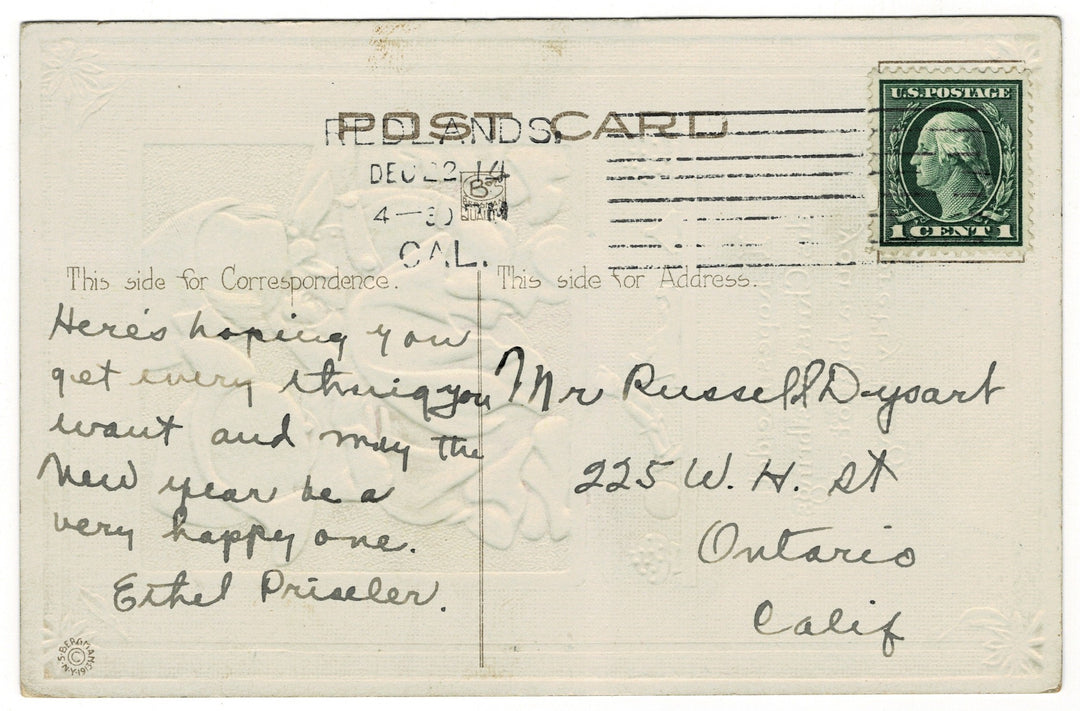 POST CARD
REDLANDS,
DEC 22 14
4—30 PM
CAL.
U.S. POSTAGE
1 CENT 1
This side for Correspondence.
This side for Address.
Here's hoping you
get every thing you
want and may the
New year be a
very happy one.
Ethel Priseler.
Mr Russell Dysart
225 W. H. St
Ontario
Calif